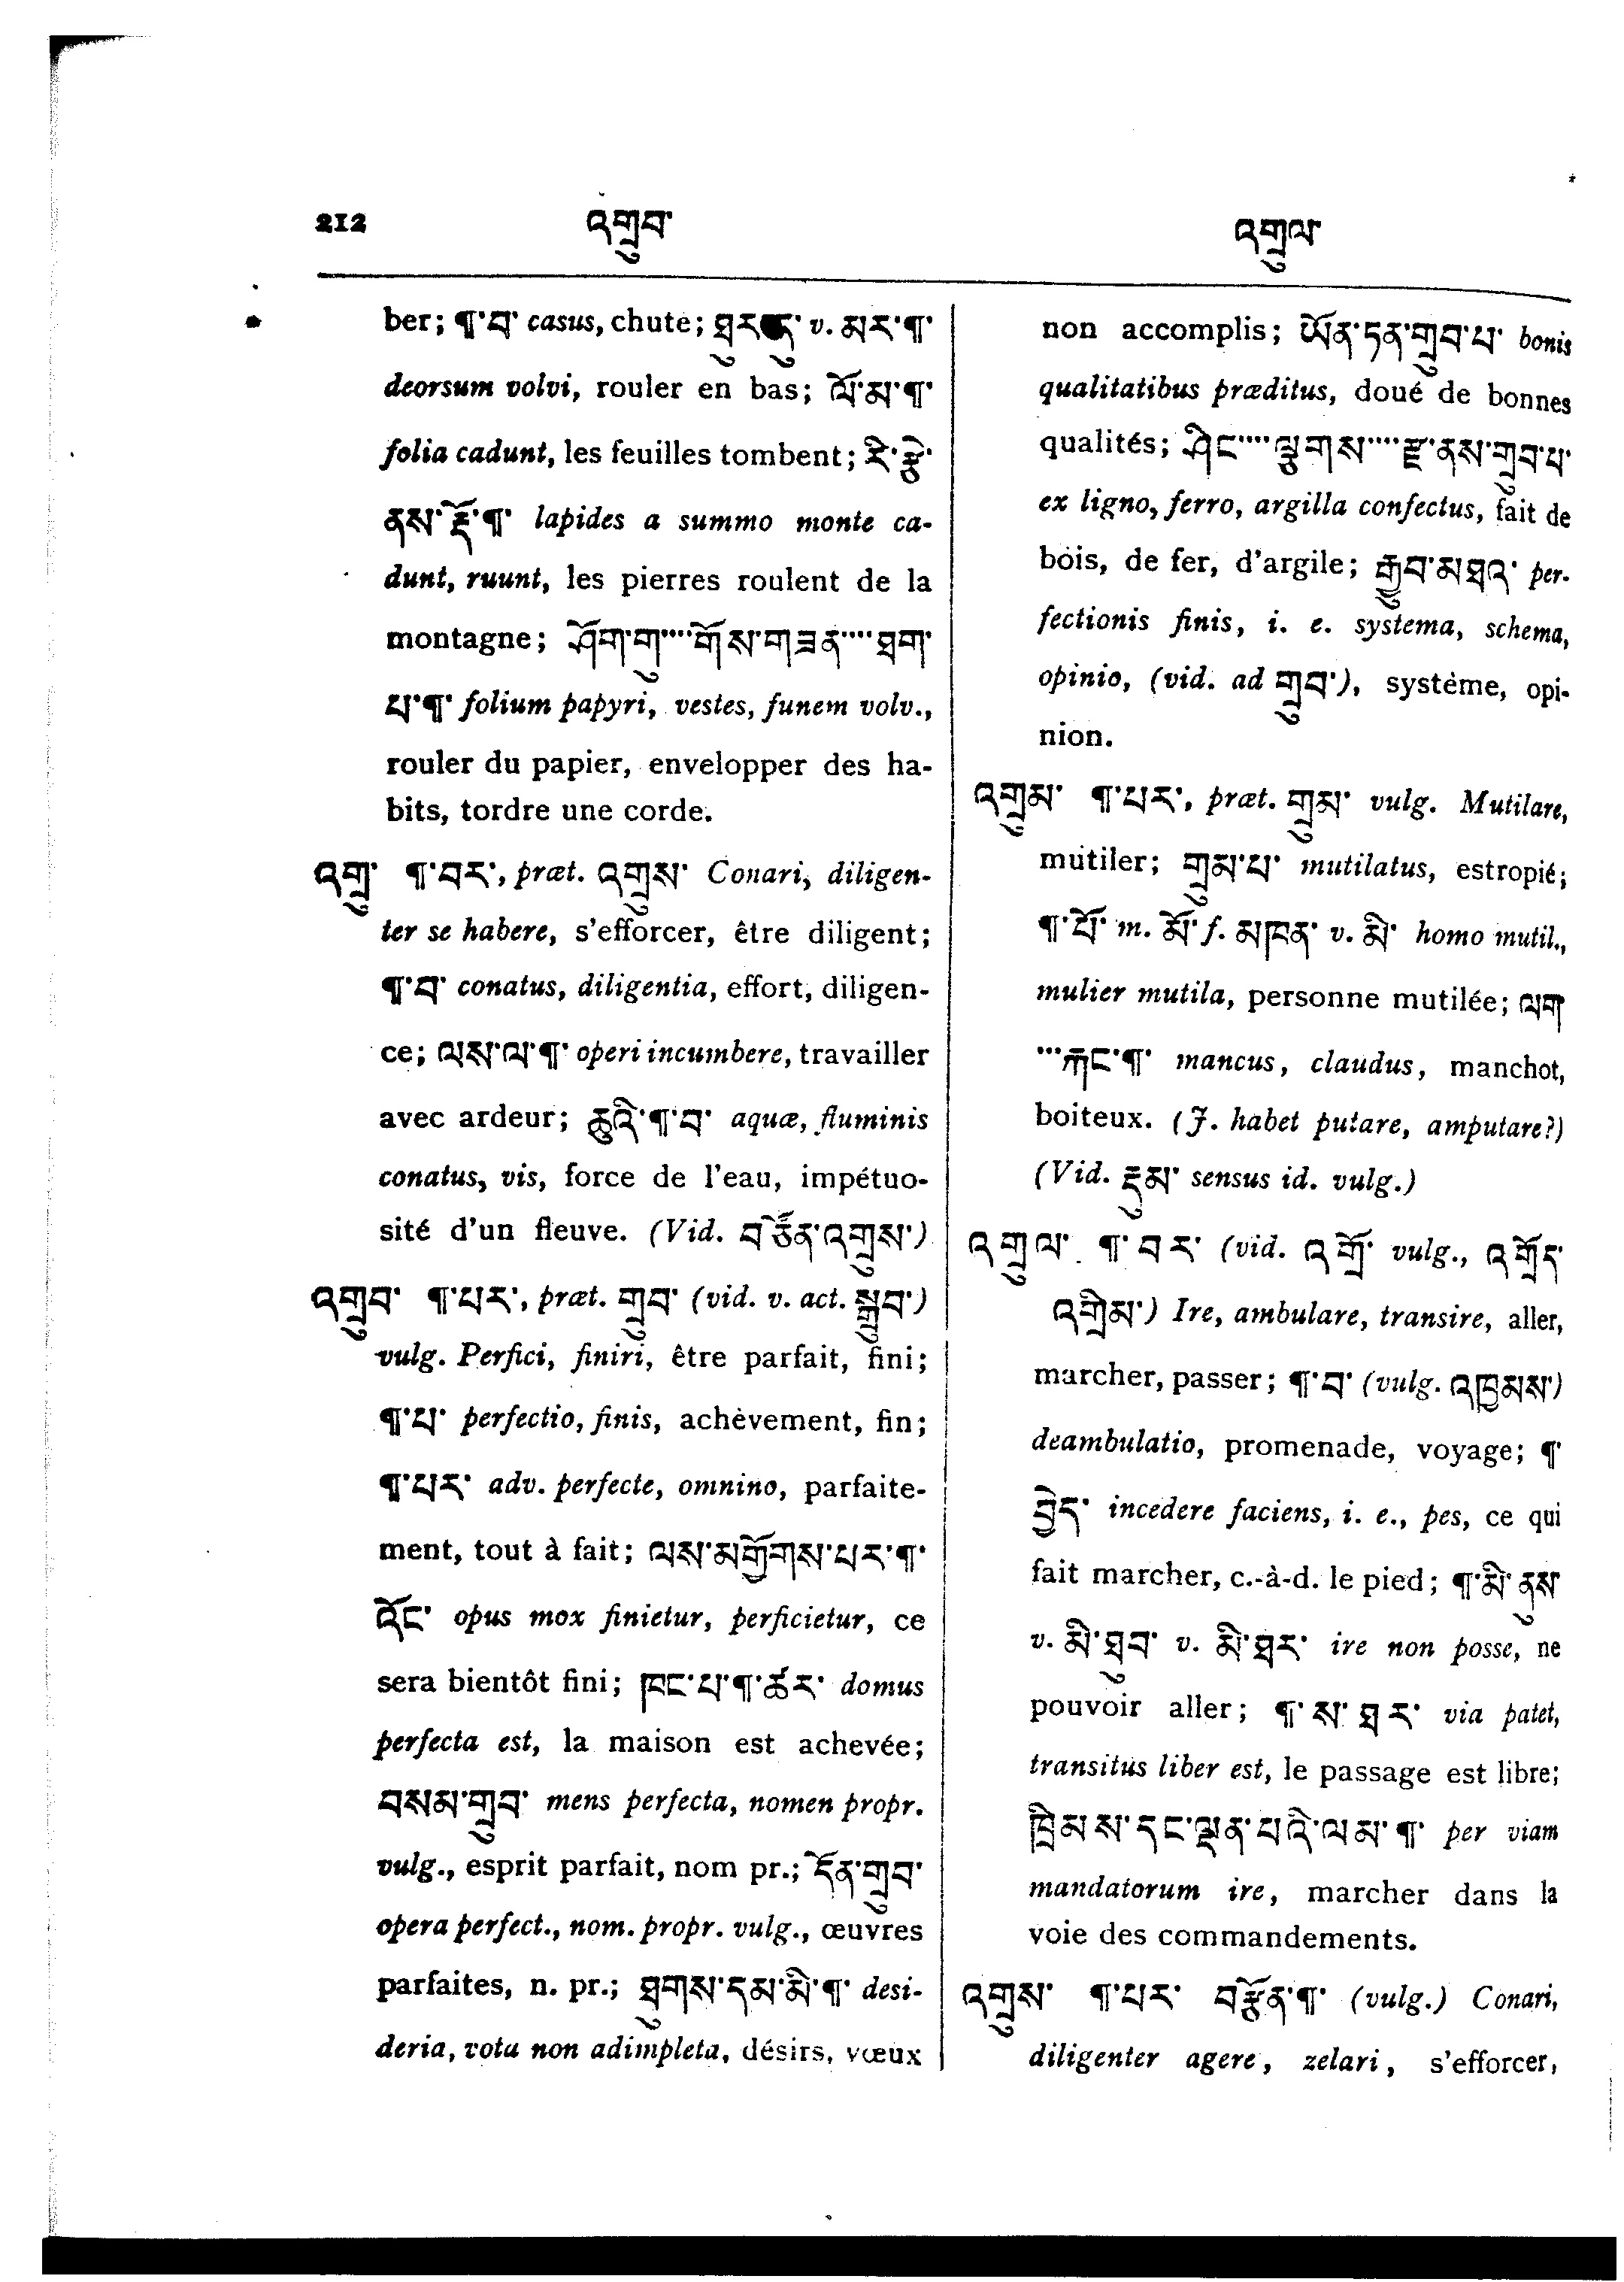 212 འགྲུབ་ འགྲུལ་
ber; ¶་བ་ casus, chute; ཐུར་དུ་ v. མར་¶་
deorsum volvi, rouler en bas; ལོ་མ་¶་
folia cadunt, les feuilles tombent; རི་རྩེ་
ནས་རྡོ་¶་ lapides a summo monte ca-
dunt, ruunt, les pierres roulent de la
montagne; ཤོག་གུ་···གོས་གཟན་···ཐག་
པ་¶་ folium papyri, vestes, funem volv.,
rouler du papier, envelopper des ha-
bits, tordre une corde.
འགྲུ་ ¶་བར་, præt. འགྲུས་ Conari, diligen-
ter se habere, s'efforcer, être diligent;
¶་བ་ conatus, diligentia, effort, diligen-
ce; ལས་ལ་¶་ operi incumbere, travailler
avec ardeur; ཆུའི་¶་བ་ aquæ, fluminis
conatus, vis, force de l'eau, impétuo-
sité d'un fleuve. (Vid. བརྩོན་འགྲུས་)
འགྲུབ་ ¶་པར་, præt. གྲུབ་ (vid. v. act. སྒྲུབ་)
vulg. Perfici, finiri, être parfait, fini;
¶་པ་ perfectio, finis, achèvement, fin;
¶་པར་ adv. perfecte, omnino, parfaite-
ment, tout à fait; ལས་མགྱོགས་པར་¶་
འོང་ opus mox finietur, perficietur, ce
sera bientôt fini; ཁང་པ་¶་ཚར་ domus
perfecta est, la maison est achevée;
བསམ་གྲུབ་ mens perfecta, nomen propr.
vulg., esprit parfait, nom pr.; དོན་གྲུབ་
opera perfect., nom. propr. vulg., œuvres
parfaites, n. pr.; ཐུགས་དམ་མི་¶་ desi-
deria, vota non adimpleta, désirs, vœux
non accomplis; ཡོན་ཏན་གྲུབ་པ་ bonis
qualitatibus præditus, doué de bonnes
qualités; ཤིང་···ལྕགས་···རྫ་ནས་གྲུབ་པ་
ex ligno, ferro, argilla confectus, fait de
bois, de fer, d'argile; གྲུབ་མཐའ་ per-
fectionis finis, i. e. systema, schema,
opinio, (vid. ad གྲུབ་), système, opi-
nion.
འགྲུམ་ ¶་པར་, præt. གྲུམ་ vulg. Mutilare,
mutiler; གྲུམ་པ་ mutilatus, estropié;
¶་པོ་ m. མོ་ f. མཁན་ v. མི་ homo mutil.,
mulier mutila, personne mutilée; ལག
···རྐང་¶་ mancus, claudus, manchot,
boiteux. (J. habet putare, amputare?)
(Vid. རྡུམ་ sensus id. vulg.)
འགྲུལ་ ¶་བར་ (vid. འགྲོ་ vulg., འགྲོད་
འགྲིམ་) Ire, ambulare, transire, aller,
marcher, passer; ¶་བ་ (vulg. འཁྱམས་)
deambulatio, promenade, voyage; ¶་
བྱེད་ incedere faciens, i. e., pes, ce qui
fait marcher, c.-à-d. le pied; ¶་མི་ནུས་
v. མི་ཐུབ་ v. མི་ཐར་ ire non posse, ne
pouvoir aller; ¶་ས་ཐར་ via patet,
transitus liber est, le passage est libre;
ཁྲིམས་དང་ལྡན་པའི་ལམ་¶་ per viam
mandatorum ire, marcher dans la
voie des commandements.
འགྲུས་ ¶་པར་ བརྩོན་¶་ (vulg.) Conari,
diligenter agere, zelari, s'efforcer,